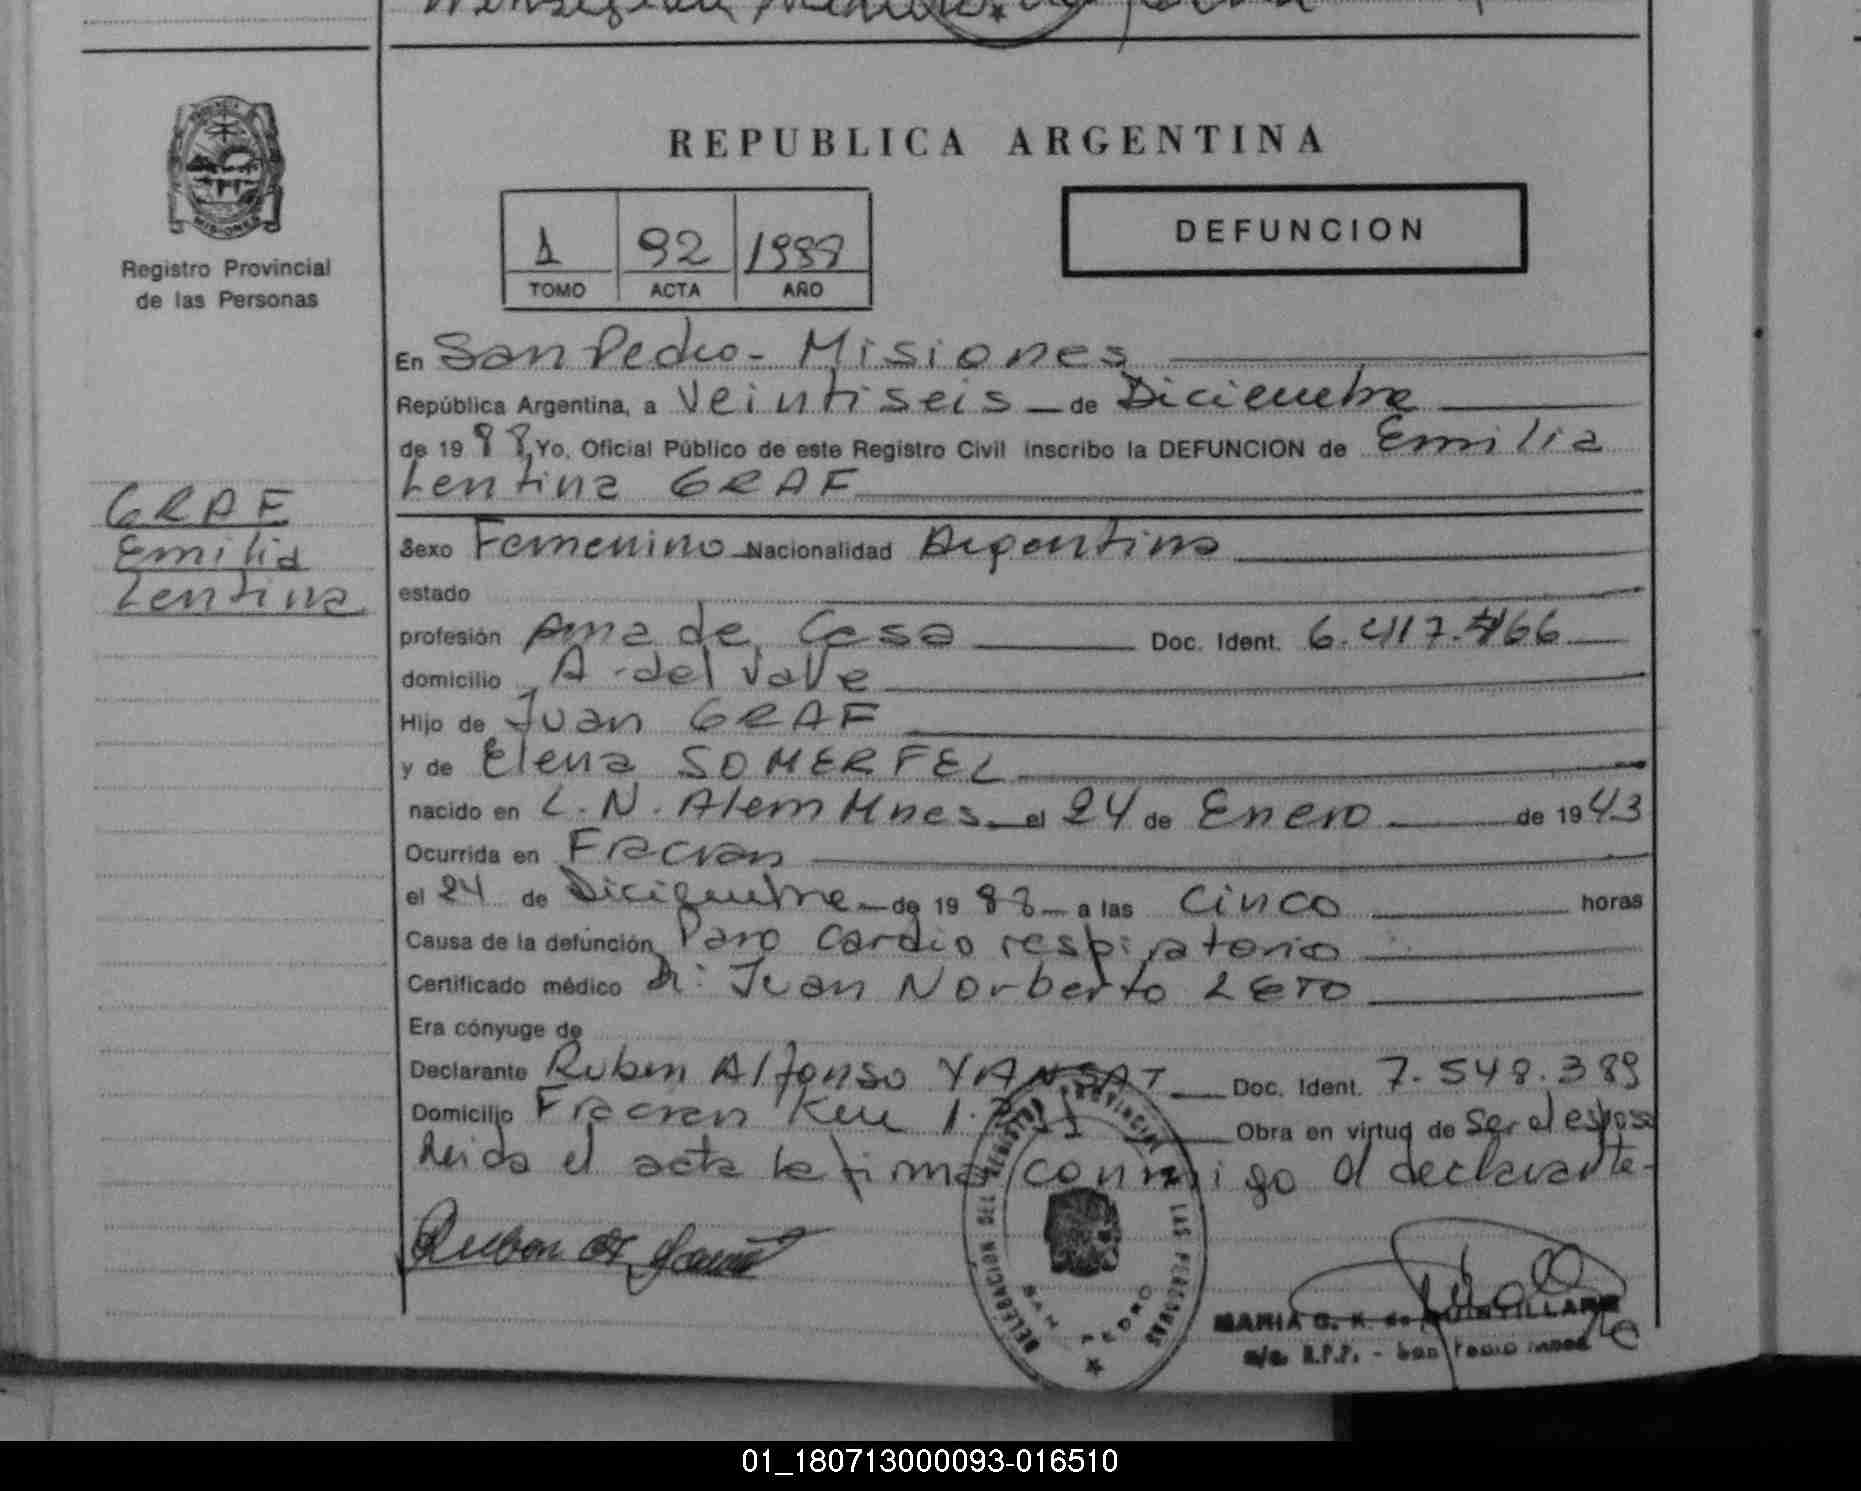 REPUBLICA ARGENTINA
DEFUNCION
1 92 1988
TOMO ACTA AÑO
MISIONES
Registro Provincial
de las Personas
En San Pedro - Misiones
República Argentina, a Veintiseis de Diciembre
de 1988 Yo, Oficial Público de este Registro Civil inscribo la DEFUNCION de Emilia
Lentina GRAF
GRAF
Emilia
Lentina
Sexo Femenino Nacionalidad Argentina
estado
profesión Ama de Casa Doc. Ident. 6.417.466
domicilio A. del Valle
Hijo de Juan GRAF
y de Elena SOMERFEL
nacido en L. N. Alem Mnes. el 24 de Enero de 1943
Ocurrida en Fracran
el 24 de Diciembre de 1988 a las Cinco horas
Causa de la defunción Paro Cardio respiratorio
Certificado médico Dr: Juan Norberto LETO
Era cónyuge de
Declarante Ruben Alfonso YANSAT Doc. Ident. 7.548.389
Domicilio Fracran Km Obra en virtud de Ser el esposo
Leida el acta la firma conmigo el declarante-
DELEGACION DEL REGISTRO PROVINCIAL DE LAS PERSONAS
SAN PEDRO
MARIA G. K. de QUINTILLAN
a/c. R.P.P. - San Pedro Mnes
01_180713000093-016510